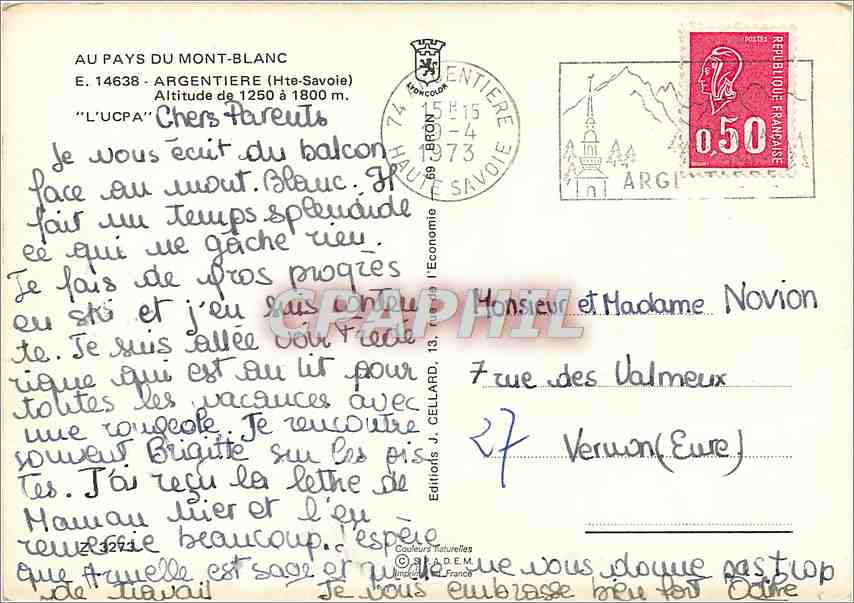 AU PAYS DU MONT-BLANC
E. 14638 - ARGENTIERE (Hte-Savoie)
Altitude de 1250 à 1800 m.
"L'UCPA"
Chers Parents
Je vous écrit du balcon
face au mont. Blanc. Il
fait un temps splendide
ce qui ne gâche rien.
Je fais de gros progrès
en ski et j'en suis conten
te. Je suis allée voir Frédé
rique qui est au lit pour
toutes les vacances avec
une rougeole. Je rencontre
souvent Brigitte sur les pis
tes. J'ai reçu la lettre de
Maman hier et l'en
remercie beaucoup. J'espère
que Armelle est sage et qu'elle ne vous donne pas trop
de travail Je vous embrasse bien fort
Z. 3273
APONCOLOR
74 ARGENTIERE
15H15
9-4
1973
HAUTE SAVOIE
ARGENTIERE
POSTES
REPUBLIQUE FRANÇAISE
0,50
Editions J. CELLARD, 13, rue de l'Economie — 69 BRON
Couleurs naturelles
© S.P.A.D.E.M.
Imprimé en France
Monsieur et Madame Novion
7 rue des Valmeux
27 Vernon (Eure)
CPAPHIL